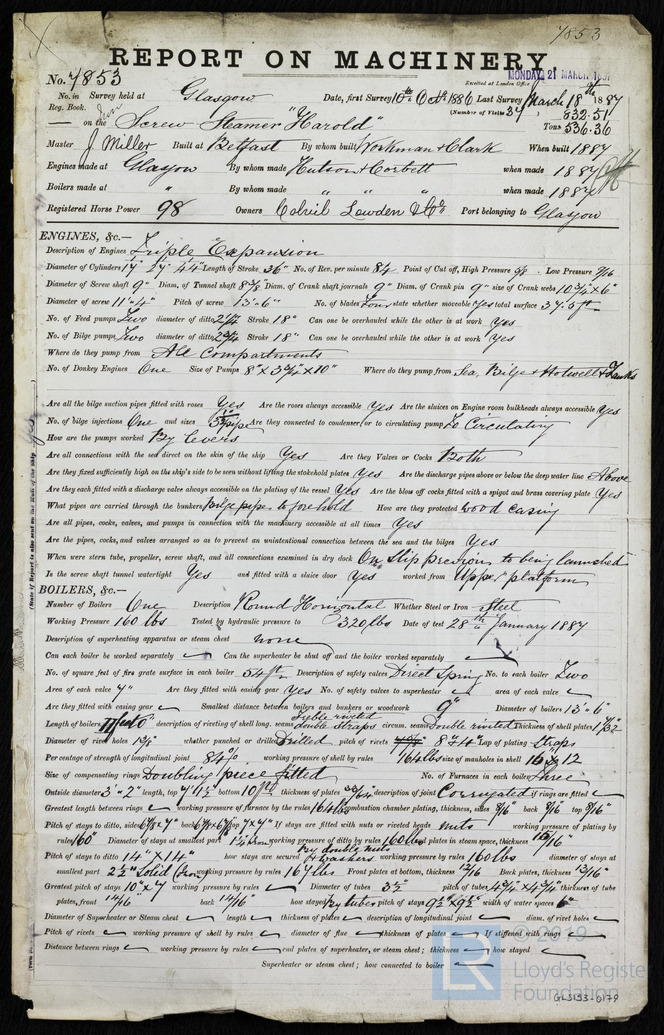 7853
REPORT ON MACHINERY
No. 7853
MONDAY 21 MARCH 1887
Received at London Office
No. in Survey held at Glasgow Date, first Survey 10th Octr 1886 Last Survey March 18th 1887
Reg. Book. (Number of Visits 34)
on the Iron Screw Steamer "Harold" Tons 832.51
536.36
Master J. Miller Built at Belfast By whom built Workman & Clark When built 1887
Engines made at Glasgow By whom made Hutson & Corbett when made 1887
Boilers made at " By whom made " " " when made 1887
Registered Horse Power 98 Owners Colvil Lowden & Co. Port belonging to Glasgow
ENGINES, &c.—
Description of Engines Triple Expansion
Diameter of Cylinders 17" 27" 44" Length of Stroke 36" No. of Rev. per minute 84 Point of Cut off, High Pressure Low Pressure 9/16
Diameter of Screw shaft 9" Diam. of Tunnel shaft 8 5/8 Diam. of Crank shaft journals 9" Diam. of Crank pin 9" size of Crank webs 10 3/4 x 6"
Diameter of screw 11"-4" Pitch of screw 13"-6" No. of blades Four state whether moveable Yes total surface 37.5 ft
No. of Feed pumps Two diameter of ditto 2 3/4 Stroke 18" Can one be overhauled while the other is at work Yes
No. of Bilge pumps Two diameter of ditto 2 3/4 Stroke 18" Can one be overhauled while the other is at work Yes
Where do they pump from All Compartments
No. of Donkey Engines One Size of Pumps 8" x 5 3/4" x 10" Where do they pump from Sea, Bilge & Hotwell & Tanks
Are all the bilge suction pipes fitted with roses Yes Are the roses always accessible Yes Are the sluices on Engine room bulkheads always accessible Yes
No. of bilge injections One and sizes Are they connected to condenser, or to circulating pump To Circulating
How are the pumps worked By Levers
Are all connections with the sea direct on the skin of the ship Yes Are they Valves or Cocks Both
Are they fixed sufficiently high on the ship's side to be seen without lifting the stokehold plates Yes Are the discharge pipes above or below the deep water line Above
Are they each fitted with a discharge valve always accessible on the plating of the vessel Yes Are the blow off cocks fitted with a spigot and brass covering plate Yes
What pipes are carried through the bunkers Bilge pipes to forehold How are they protected wood casing
Are all pipes, cocks, valves, and pumps in connection with the machinery accessible at all times Yes
Are the pipes, cocks, and valves arranged so as to prevent an unintentional connection between the sea and the bilges Yes
When were stern tube, propeller, screw shaft, and all connections examined in dry dock On slip previous to being launched
Is the screw shaft tunnel watertight Yes and fitted with a sluice door Yes worked from Upper platform
BOILERS, &c.—
Number of Boilers One Description Round Horizontal Whether Steel or Iron Steel
Working Pressure 160 lbs Tested by hydraulic pressure to 320 lbs Date of test 28th January 1887
Description of superheating apparatus or steam chest none
Can each boiler be worked separately Can the superheater be shut off and the boiler worked separately
No. of square feet of fire grate surface in each boiler 54 ft. Description of safety valves Direct Spring No. to each boiler Two
Area of each valve 7" Are they fitted with easing gear Yes No. of safety valves to superheater area of each valve
Are they fitted with easing gear Smallest distance between boilers and bunkers or woodwork 9" Diameter of boilers 13"-6"
Length of boilers description of riveting of shell long. seams Treble riveted double straps circum. seams Double riveted Thickness of shell plates 1 3/32
Diameter of rivet holes whether punched or drilled Drilled pitch of rivets Lap of plating Straps
Per centage of strength of longitudinal joint 84% working pressure of shell by rules 164 lbs size of manholes in shell 16 x 12
Size of compensating rings Doubling piece fitted No. of Furnaces in each boiler Three
Outside diameter 3'-2" length, top 7'4 1/2 bottom 10 ft thickness of plates description of joint Corrugated if rings are fitted
Greatest length between rings working pressure of furnace by the rules 164 lbs combustion chamber plating, thickness, sides 9/16" back 9/16" top 9/16"
Pitch of stays to ditto, sides back top 7" x 7" If stays are fitted with nuts or riveted heads nuts working pressure of plating by
rules 160" Diameter of stays at smallest part working pressure of ditto by rules 160 lbs end plates in steam space, thickness 15/16"
Pitch of stays to ditto 14" x 14" how stays are secured by double nuts & washers working pressure by rules 160 lbs diameter of stays at
smallest part 2 1/2" solid (Iron) working pressure by rules 167 lbs Front plates at bottom, thickness 12/16 Back plates, thickness 13/16"
Greatest pitch of stays 10" x 7 working pressure by rules Diameter of tubes 3 1/2 pitch of tubes 4 3/4" x 4 3/4" thickness of tube
plates, front 14/16" back 14/16" how stayed by tubes pitch of stays 9 1/2 x 9 1/2 width of water spaces 6"
Diameter of Superheater or Steam chest length thickness of plates description of longitudinal joint diam. of rivet holes
Pitch of rivets working pressure of shell by rules diameter of flue thickness of plates If stiffened with rings
Distance between rings working pressure by rules end plates of superheater, or steam chest; thickness how stayed
Superheater or steam chest; how connected to boiler
© 2019
Lloyd's Register
Foundation
GLS153-0179